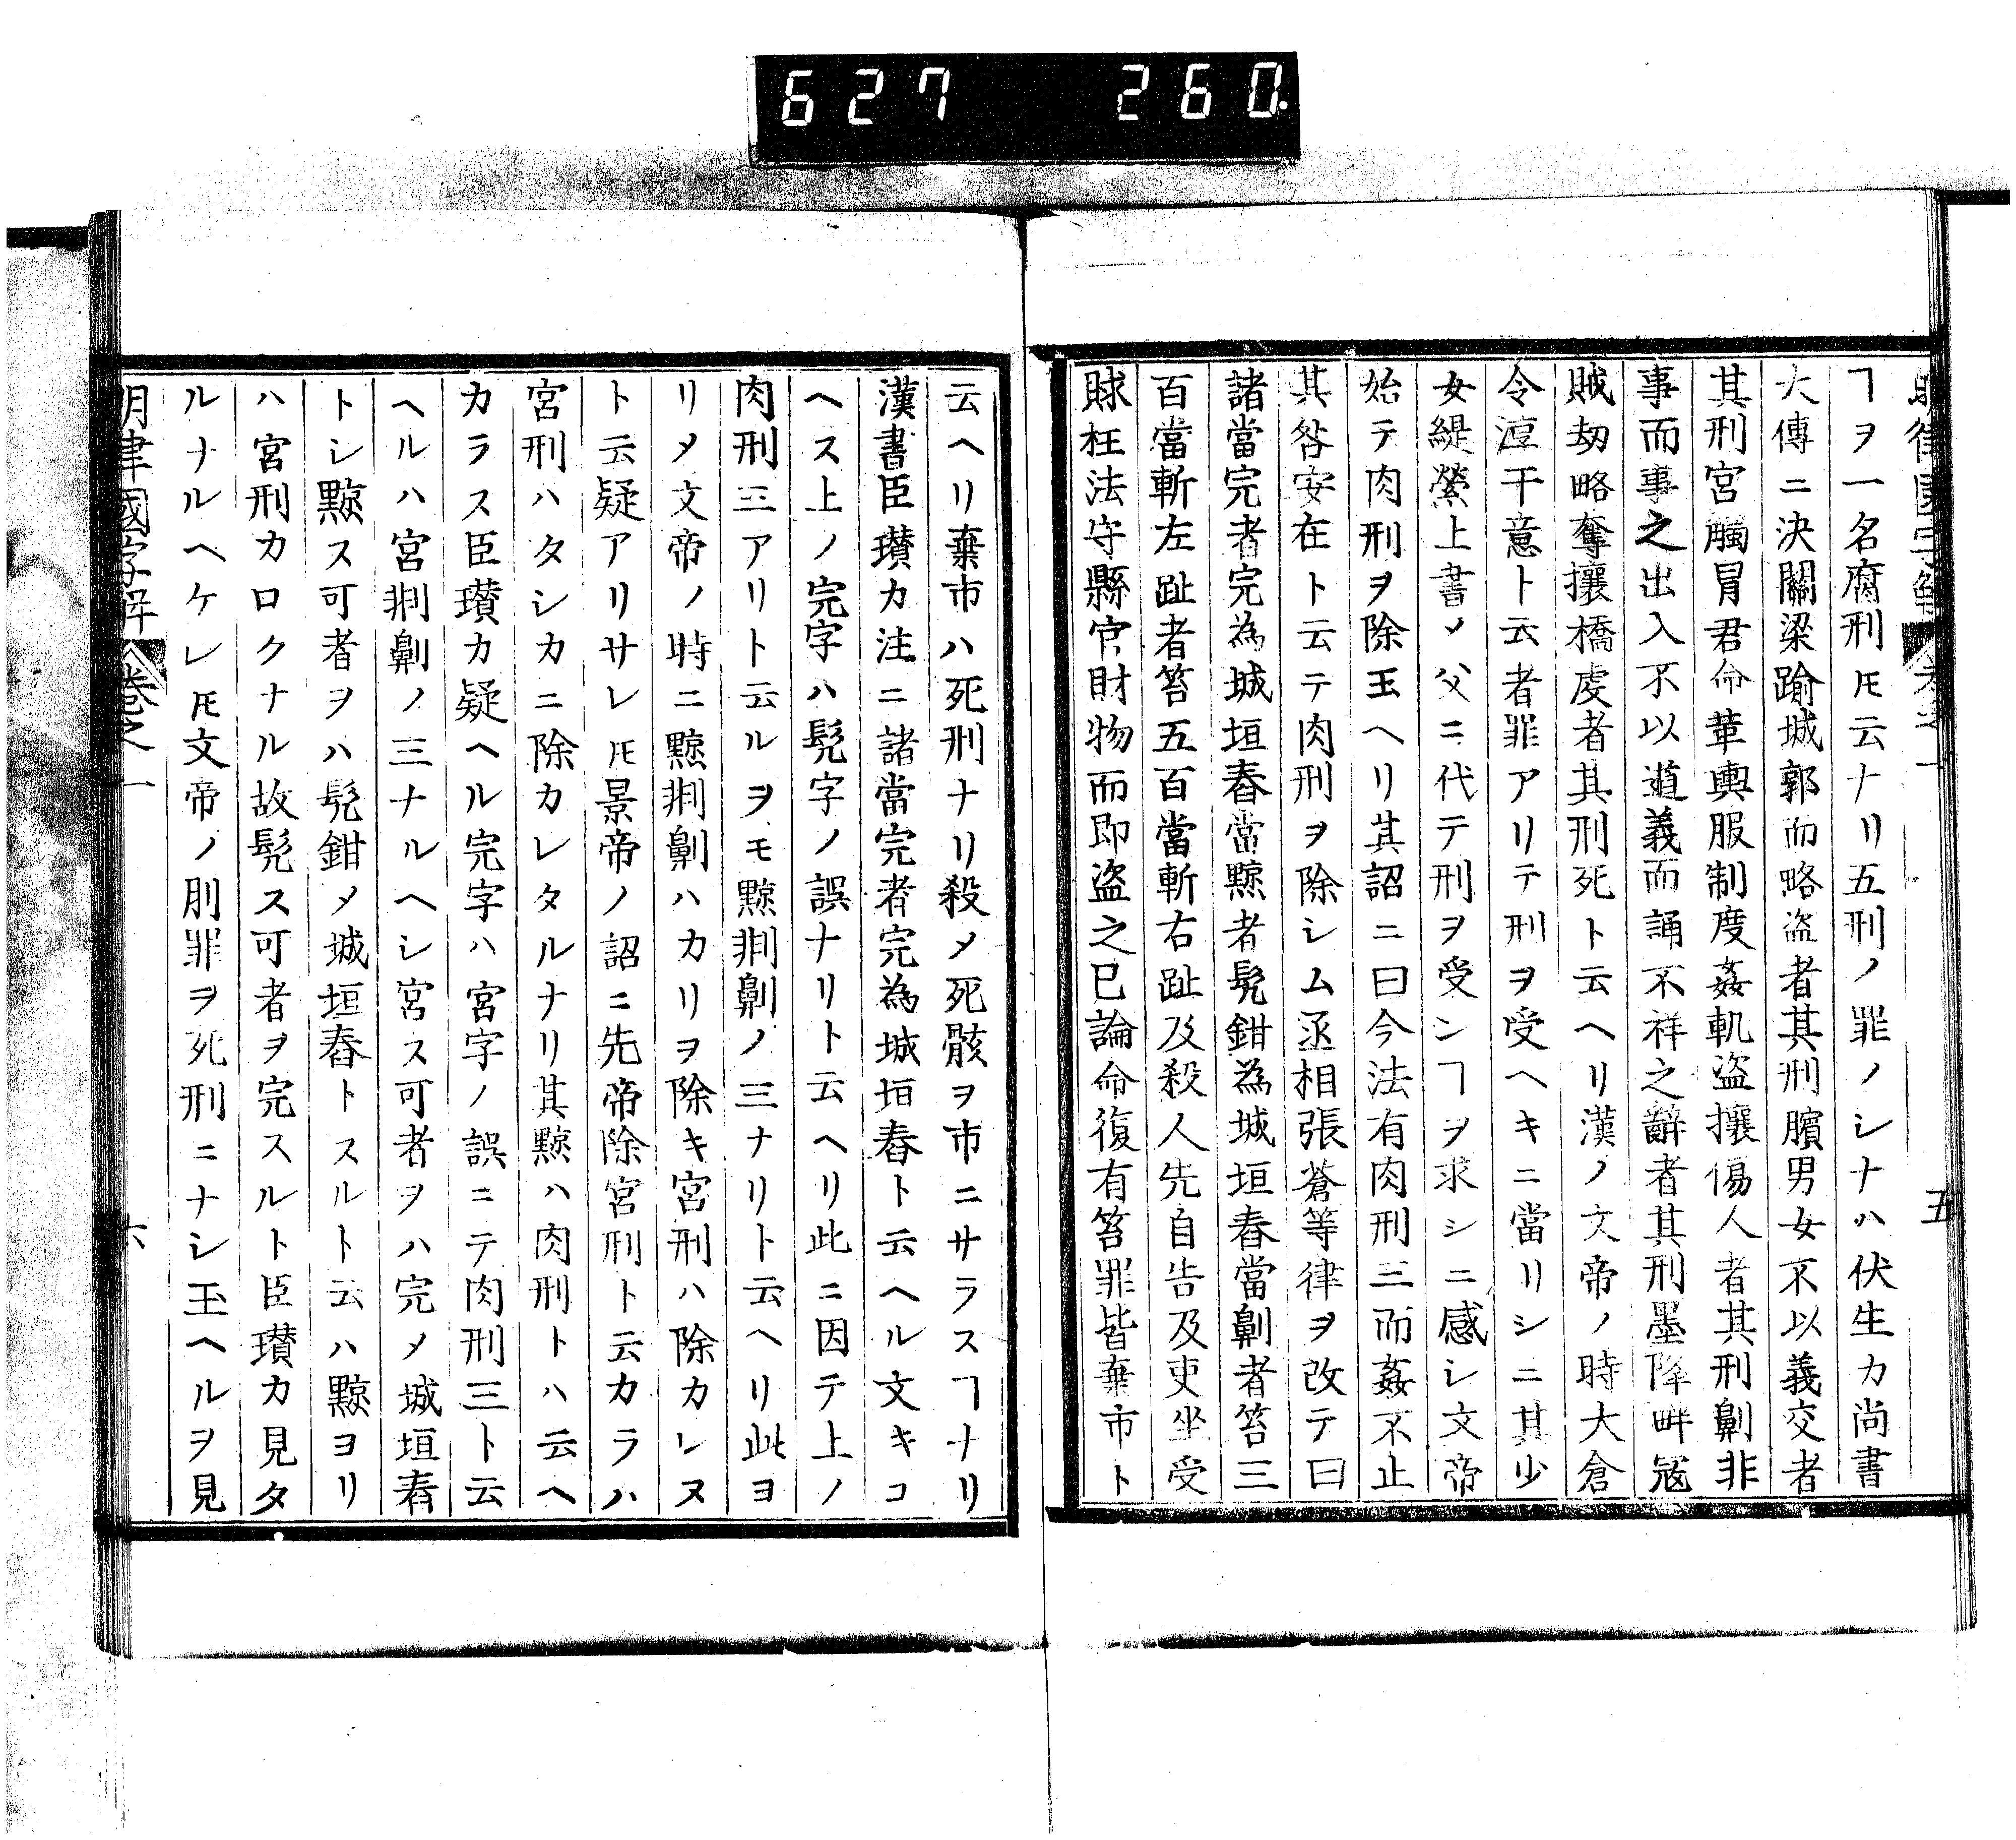 627 260
明律國字解 卷之一 五
ヿヲ一名腐刑𪜈云ナリ五刑ノ罪ノシナハ伏生カ尚書
大傳ニ決關梁踰城郭而略盗者其刑臏男女不以義交者
其刑宮觸冒君命革輿服制度姦軌盗攘傷人者其刑劓非
事而事之出入不以道義而誦不祥之辭者其刑墨降畔寇
賊劫略奪攘橋虔者其刑死ト云ヘリ漢ノ文帝ノ時大倉
令淳于意ト云者罪アリテ刑ヲ受ヘキニ當リシニ其少
女緹縈上書メ父ニ代テ刑ヲ受ンヿヲ求シニ感シ文帝
始テ肉刑ヲ除玉ヘリ其詔ニ曰今法有肉刑三而姦不止
其咎安在ト云テ肉刑ヲ除シム丞相張蒼等律ヲ改テ曰
諸當完者完為城垣舂當黥者髡鉗為城垣舂當劓者笞三
百當斬左趾者笞五百當斬右趾及殺人先自告及吏坐受
賕枉法守縣官財物而即盗之已論命復有笞罪皆棄市ト
云ヘリ棄市ハ死刑ナリ殺メ死骸ヲ市ニサラスヿナリ
漢書臣瓚カ注ニ諸當完者完為城垣舂ト云ヘル文キコ
ヘス上ノ完字ハ髡字ノ誤ナリト云ヘリ此ニ因テ上ノ
肉刑三アリト云ルヲモ黥剕劓ノ三ナリト云ヘリ此ヨ
リメ文帝ノ時ニ黥剕劓ハカリヲ除キ宮刑ハ除カレヌ
ト云疑アリサレ𪜈景帝ノ詔ニ先帝除宮刑ト云カラハ
宮刑ハタシカニ除カレタルナリ其黥ハ肉刑トハ云ヘ
カラス臣瓚カ疑ヘル完字ハ宮字ノ誤ニテ肉刑三ト云
ヘルハ宮剕劓ノ三ナルヘシ宮ス可者ヲハ完メ城垣舂
トシ黥ス可者ヲハ髡鉗メ城垣舂トスルト云ハ黥ヨリ
ハ宮刑カロクナル故髡ス可者ヲ完スルト臣瓚カ見タ
ルナルヘケレ𪜈文帝ノ刖罪ヲ死刑ニナシ玉ヘルヲ見
明律國字解 卷之一 六